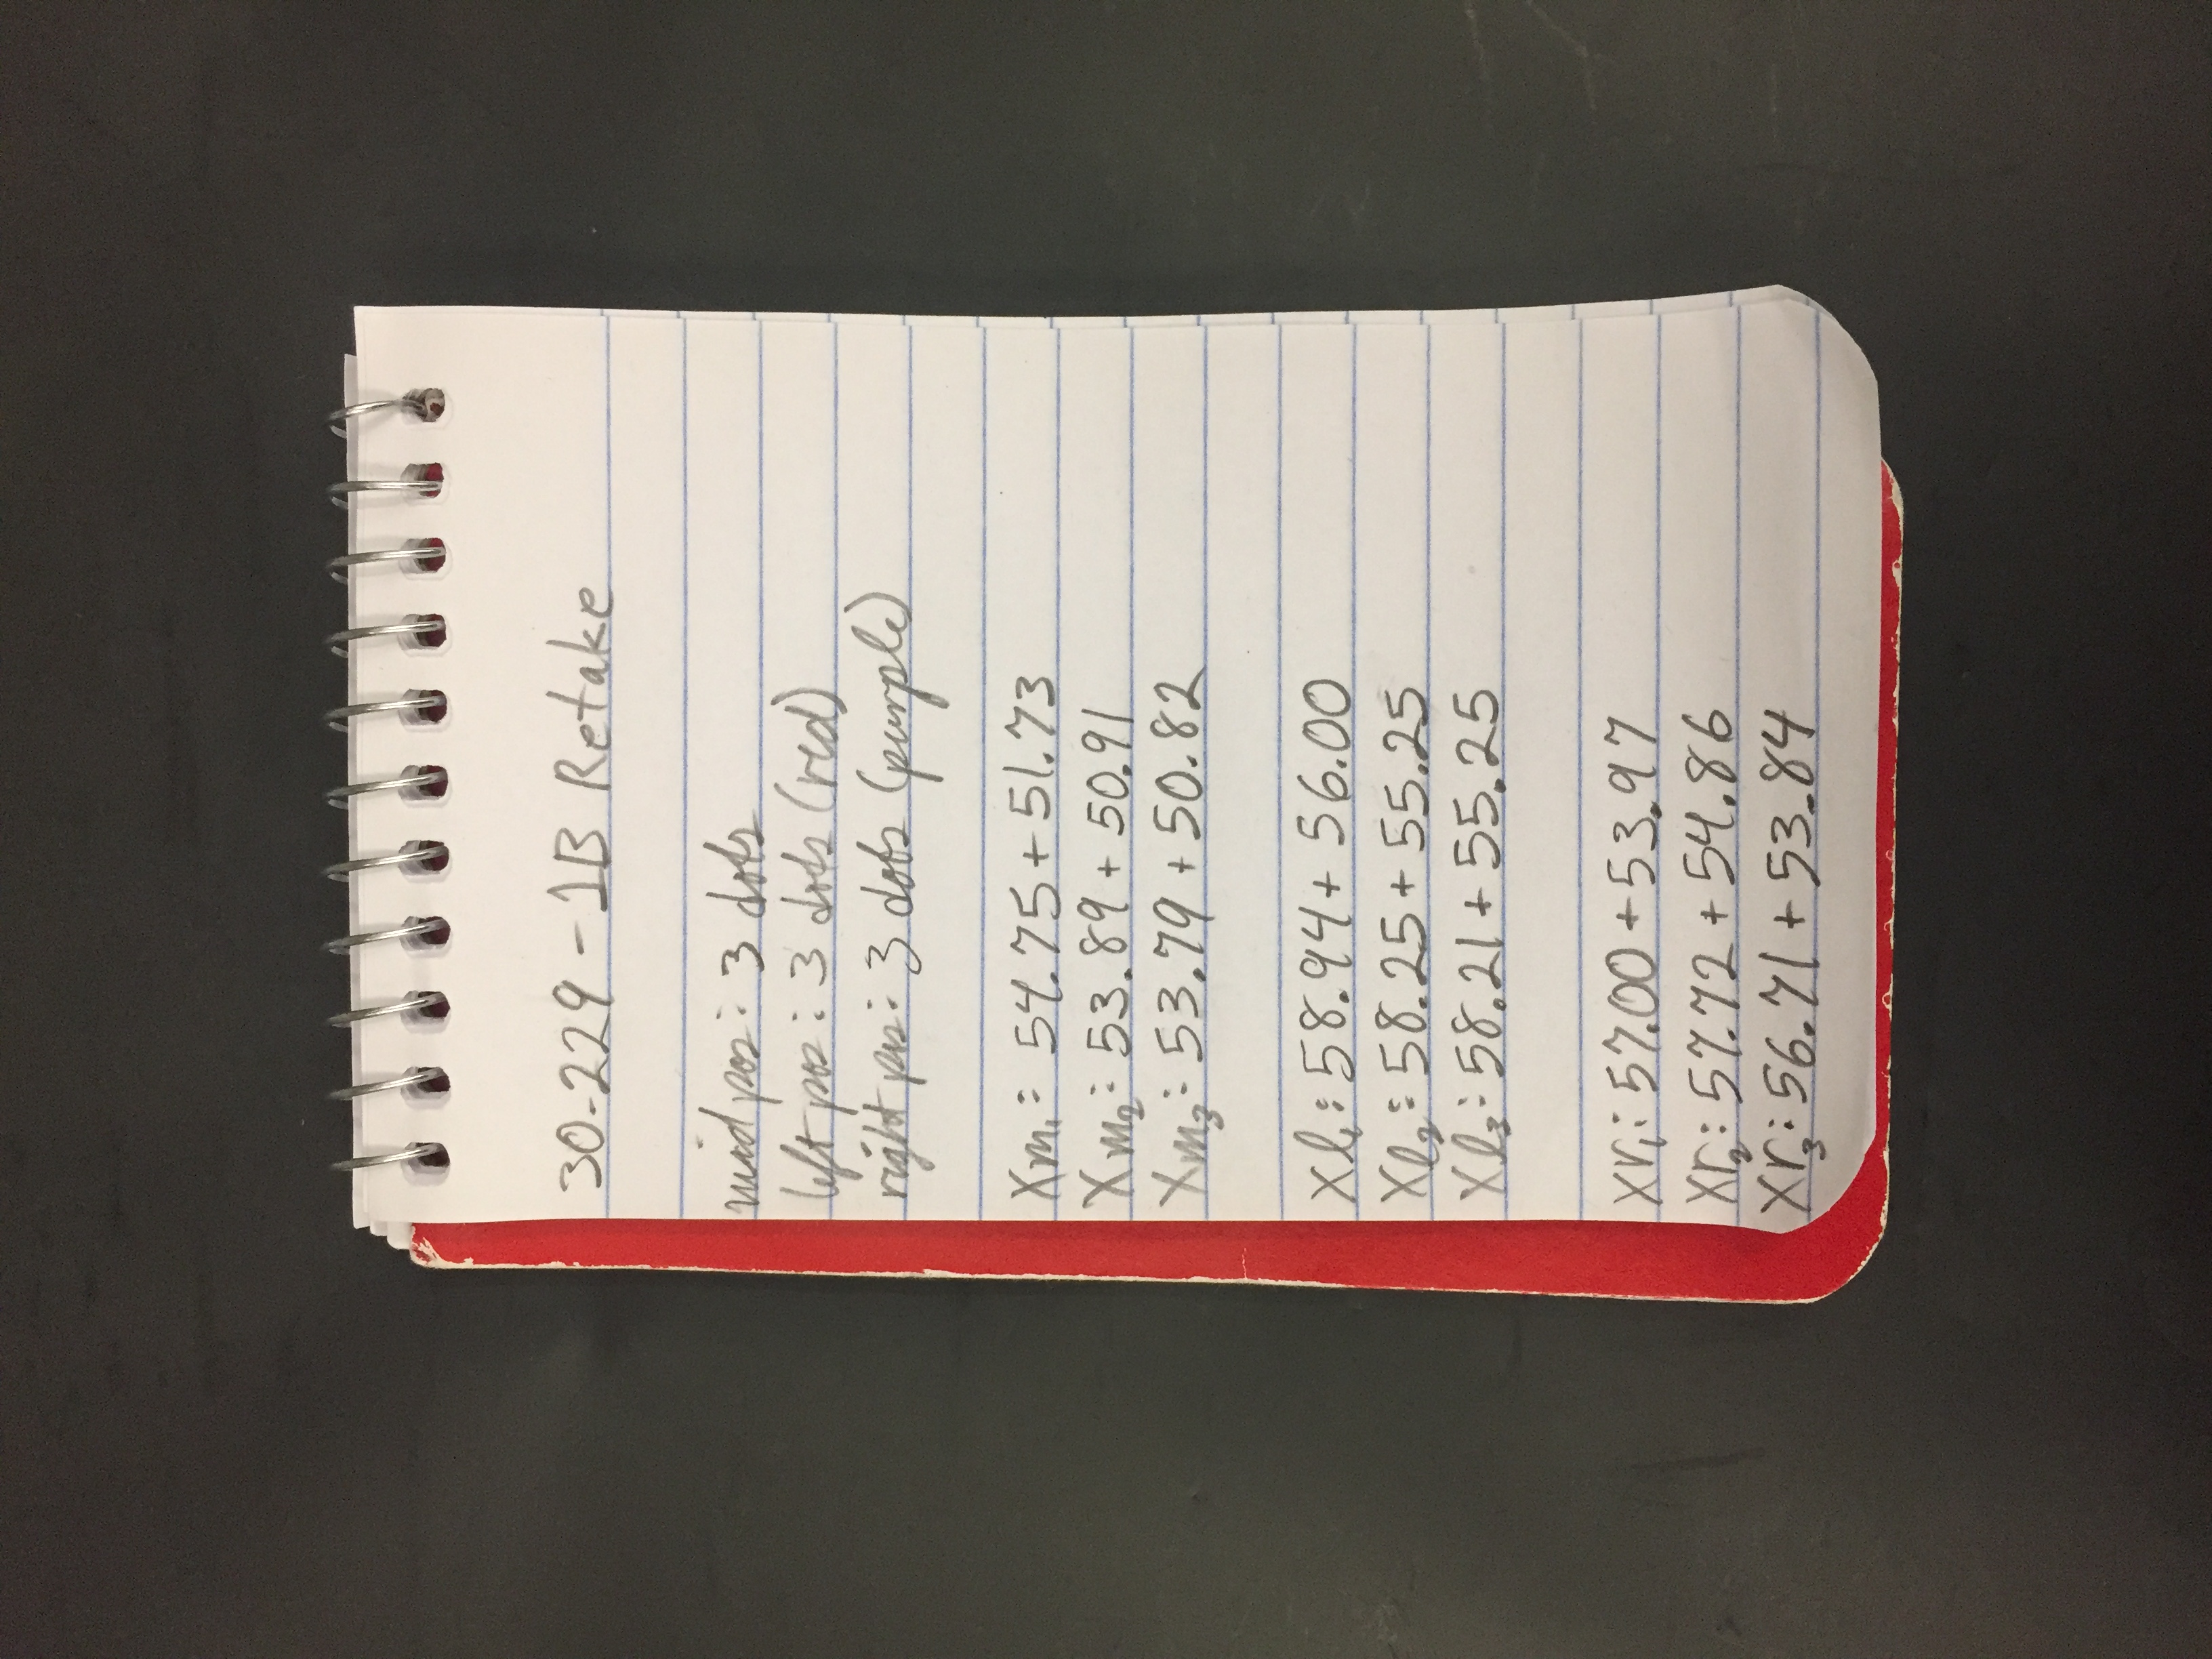 30-229-1B Retake
mid pos: 3 dots
left pos: 3 dots (red)
right pos: 3 dots (purple)
Xm₁: 54.75 + 51.73
Xm₂: 53.89 + 50.91
Xm₃: 53.79 + 50.82
Xl₁: 58.94 + 56.00
Xl₂: 58.25 + 55.25
Xl₃: 58.21 + 55.25
Xr₁: 57.00 + 53.97
Xr₂: 57.72 + 54.86
Xr₃: 56.71 + 53.84